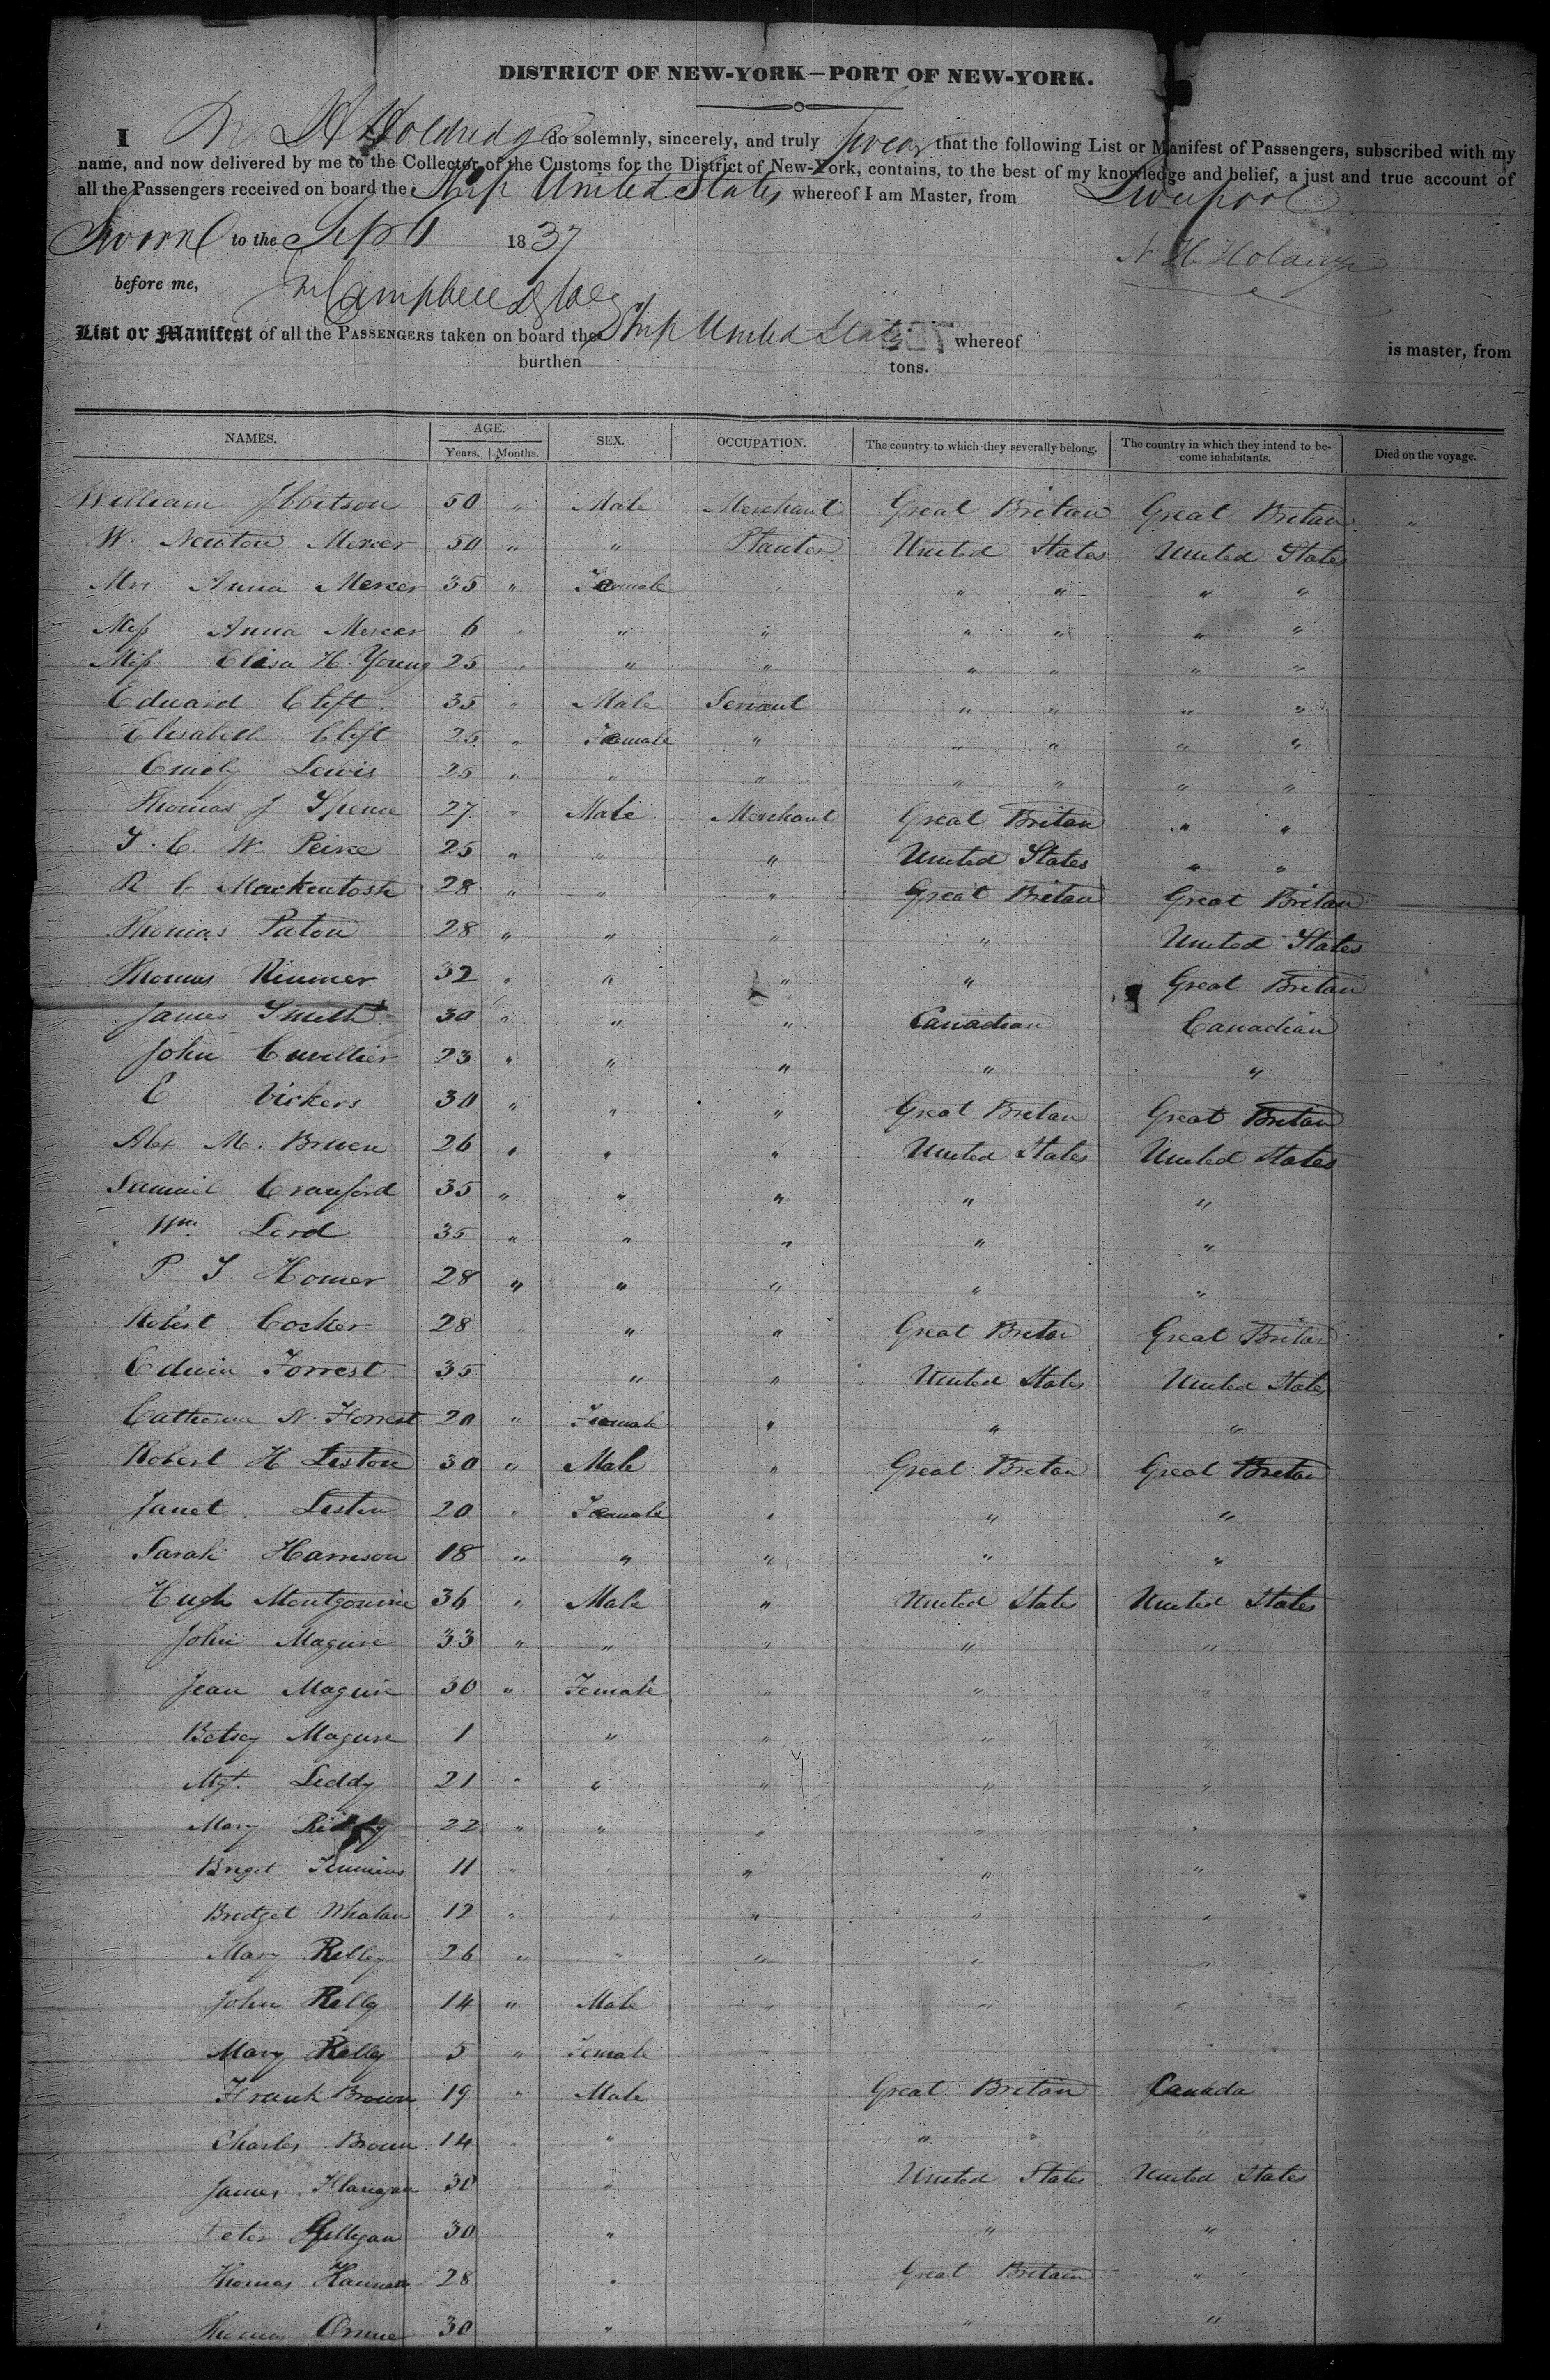 DISTRICT OF NEW-YORK—PORT OF NEW-YORK.
I N H Holdredge do solemnly, sincerely, and truly swear that the following List or Manifest of Passengers, subscribed with my
name, and now delivered by me to the Collector of the Customs for the District of New-York, contains, to the best of my knowledge and belief, a just and true account of
all the Passengers received on board the Ship United States whereof I am Master, from Liverpool
Sworn to the Sept 1837
before me, Campbell N H Holdredge
List or Manifest of all the PASSENGERS taken on board the Ship United States whereof is master, from
burthen tons.
NAMES. AGE. Years. Months. SEX. OCCUPATION. The country to which they severally belong. The country in which they intend to become inhabitants. Died on the voyage.
William Ibbetson 50 " Male Merchant Great Britan Great Britan "
W. Newton Mercer 50 " " Planter United States United States
Mrs Anna Mercer 35 " Female " " " " "
Miss Anna Mercer 6 " " " " " " "
Miss Elisa H. Young 25 " " " " " " "
Edward Clift 35 " Male Servant " " " "
Elisabeth Clift 25 " Female " " " " "
Emely Lewis 25 " " " " " " "
Thomas J Spence 27 " Male Merchant Great Britan " "
S. C. W Peirce 25 " " " United States " "
R C Mackintosh 28 " " " Great Britan Great Britan
Thomas Paton 28 " " " " United States
Thomas Rimmer 32 " " " " Great Britan
James Smith 30 " " " Canadian Canadian
John Cuvillier 23 " " " " "
E Vickers 30 " " " Great Britan Great Britan
Alex M. Bruen 26 " " " United States United States
Samuel Crauford 35 " " " " "
Wm. Lord 35 " " " " "
P J Homer 28 " " " " "
Robert Cocker 28 " " " Great Britan Great Britan
Edwin Forrest 35 " " United States United States
Catherine N. Forrest 20 " Female " " "
Robert H Liston 30 " Male " Great Britan Great Britan
Janet Liston 20 " Female " " "
Sarah Harrison 18 " " " " "
Hugh Montgomrie 36 " Male " United States United States
John Maguire 33 " " " " "
Jean Maguire 30 " Female " " "
Betsey Maguire 1 " " " "
Mgt. Leddy 21 " " " " "
Mary 22 " " " " "
Briget 11 " " " " "
Bridget Whalan 12 " " " " "
Mary Relley 26 " " " " "
John Relly 14 " Male " " "
Mary Relly 5 " Female "
Frank Brown 19 " Male Great Britan Canada
Charles Brown 14 " " " " "
James Flanagan 30 " United States United States
Peter Gilligan 30 " " "
Thomas Hannan 28 " Great Britain "
Thomas Orme 30 " " "